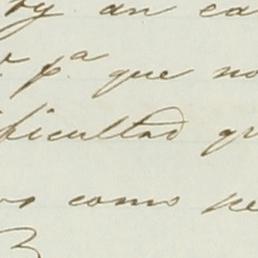 oy an ca
r pa que no
ficultad qu
os como pe